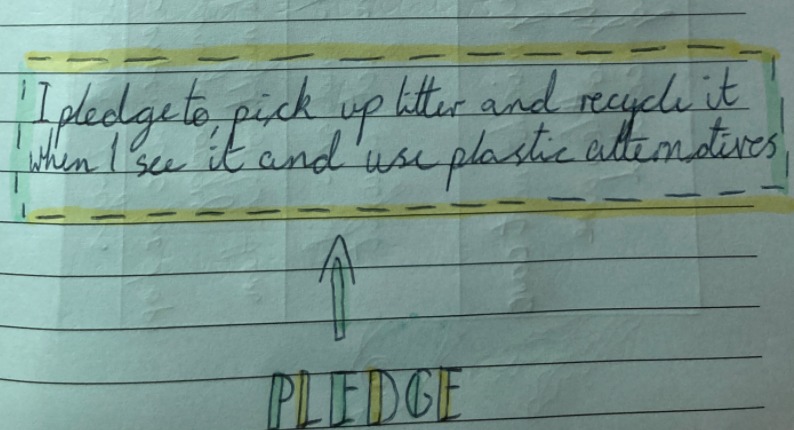 I pledge to, pick up litter and recycle it
when I see it and use plastic alternatives
PLEDGE